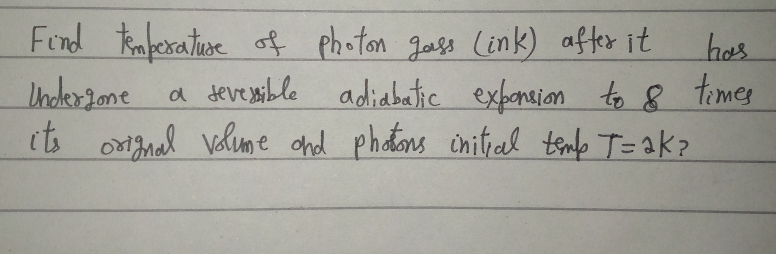 Find temperature of photon gass (ink) after it has
Undergone a reversible adiabatic expansion to 8 times
its orignal volume and photons initial temp T=2K?